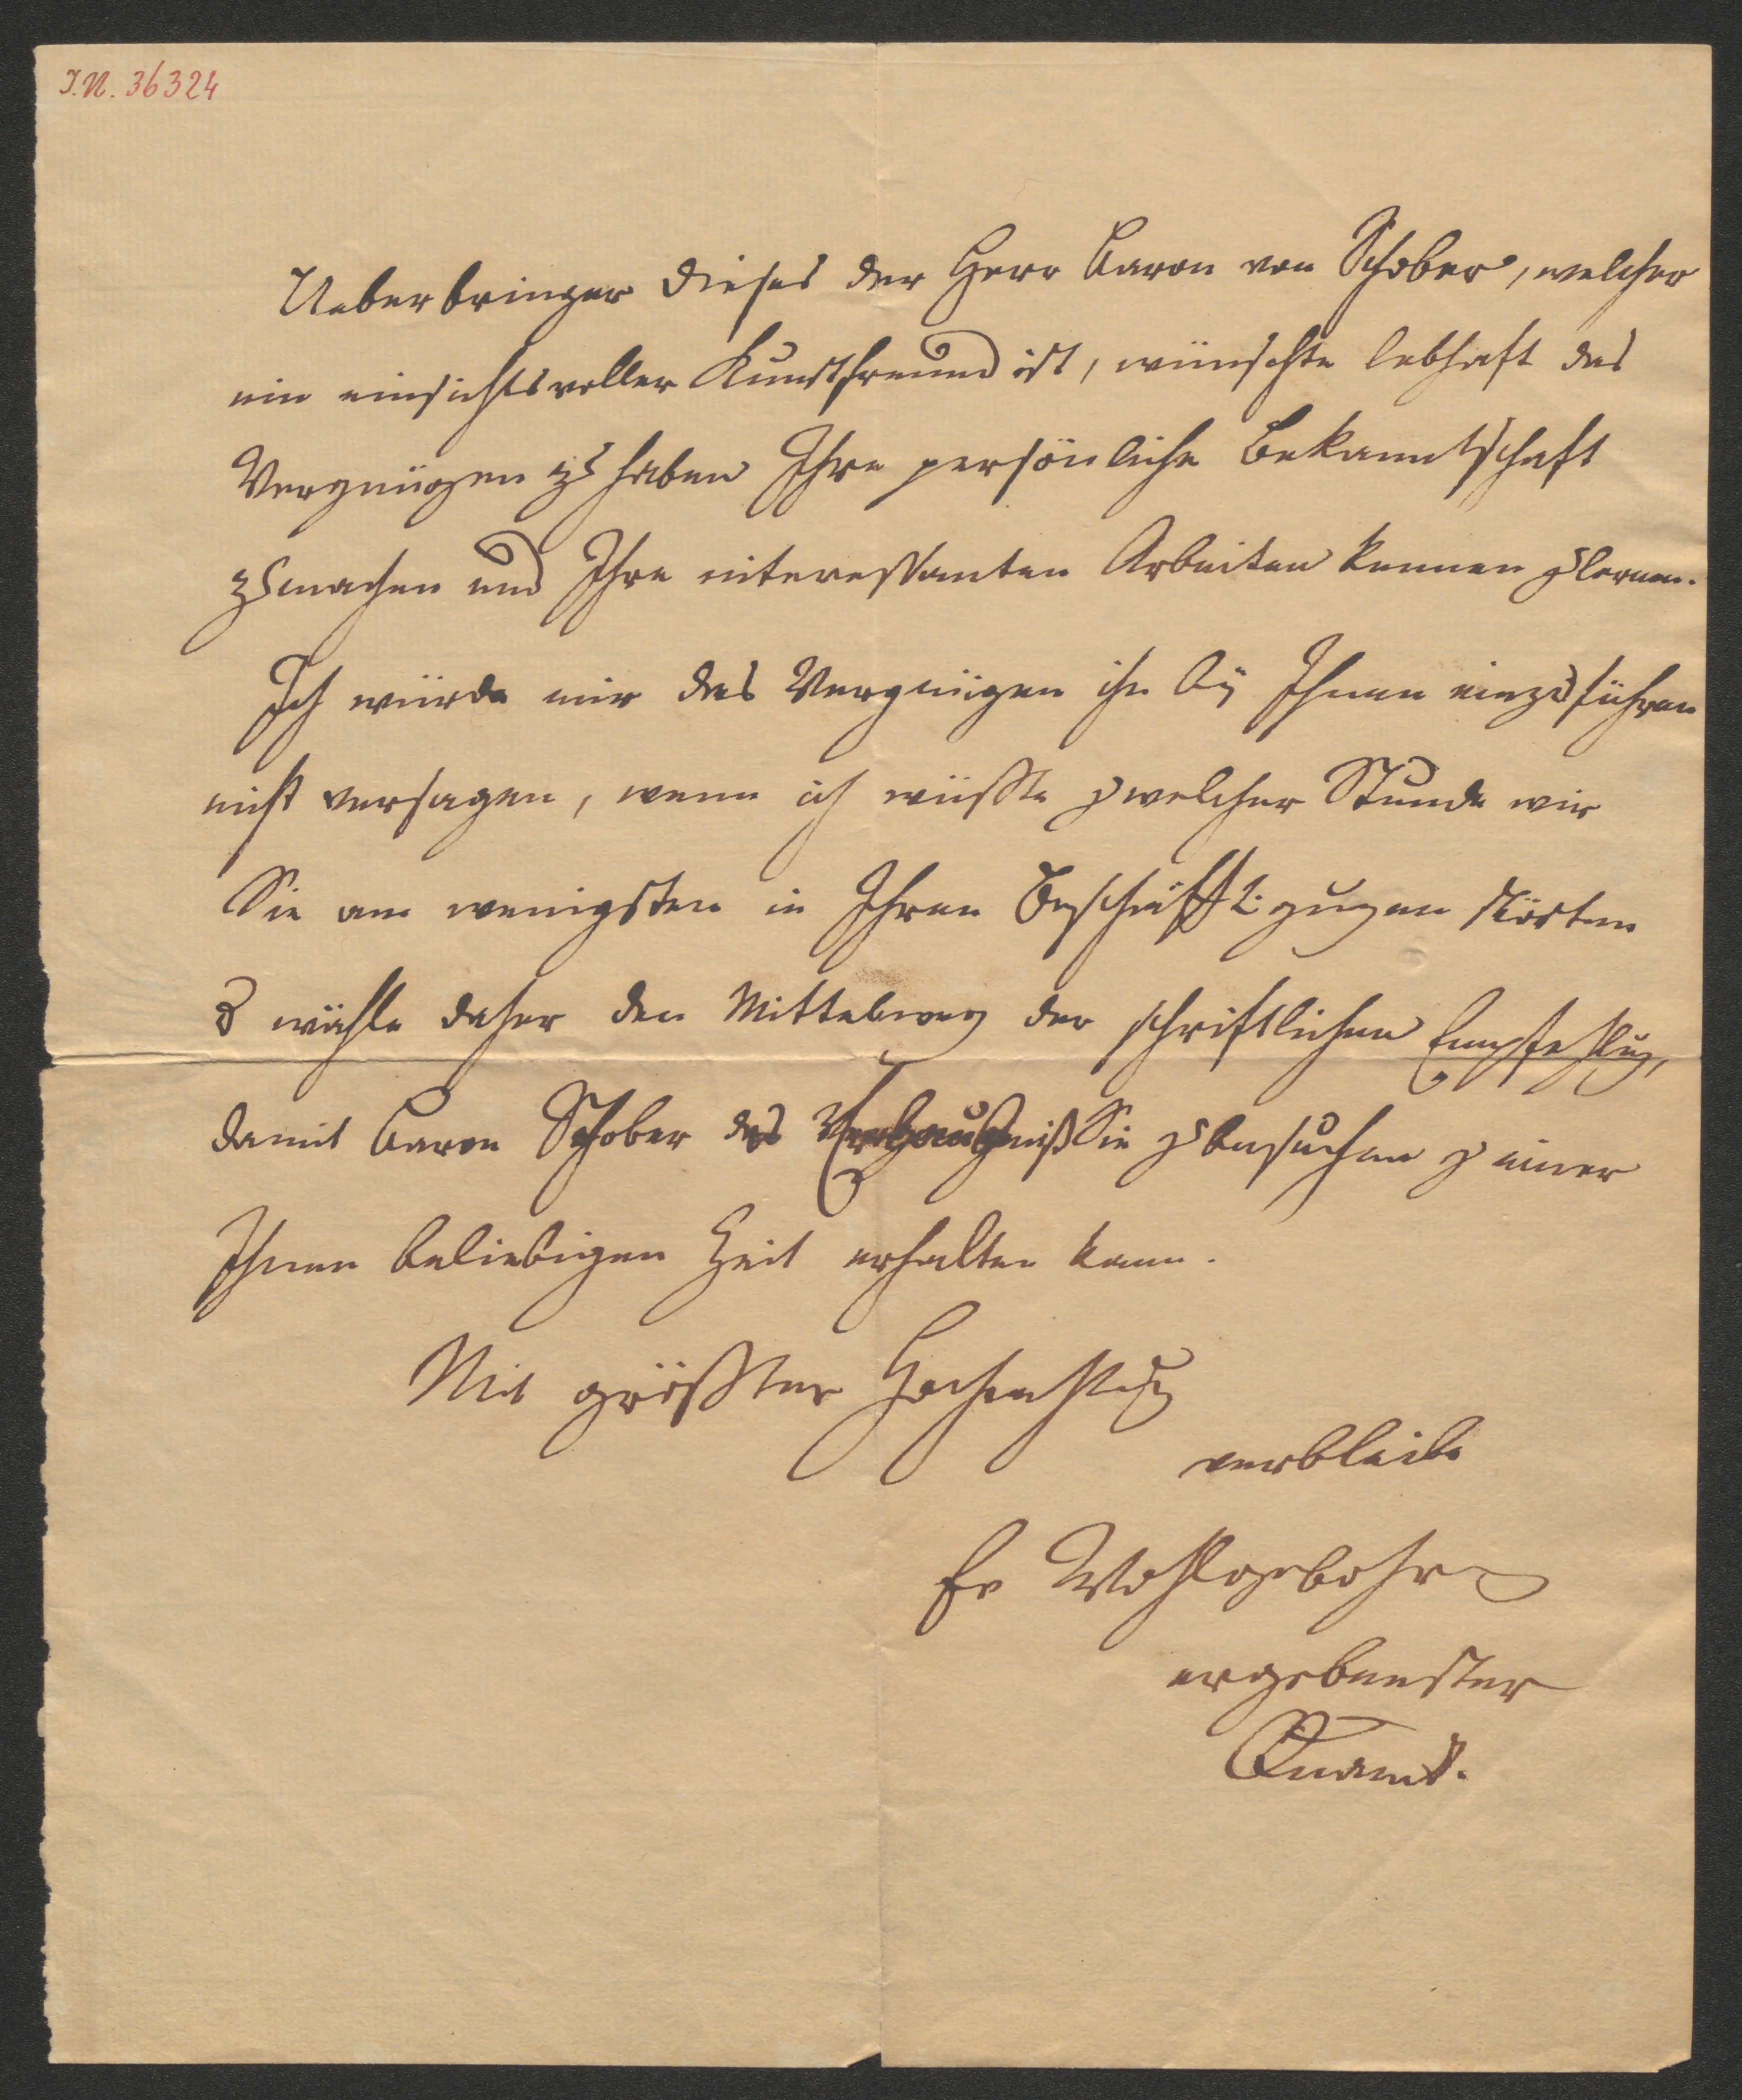 I.N. 36324
Ueberbringer dieses der Herr Baron von Schober, welcher
ein einsichtsvoller Kunstfreund ist, wünschte lebhaft das
Vergnügen zu haben Ihre persönliche Bekanntschaft
zu machen und Ihre interessanten Arbeiten kennen zu lernen.
Ich würde mir das Vergnügen ihn bey Ihnen einzuführen
nicht versagen, wenn ich wüßte zu welcher Stunde wir
Sie am wenigsten in Ihren Beschäfftigungen störten
& wähle daher den Mittelweg der schriftlichen Empfehlung,
damit Baron Schober das Sie zu besuchen zu einer
Ihnen beliebigen Zeit erhalten kann.
Mit größter Hochachtung
verbleibe
Ew Wohlgebohren
ergebenster
Quandt.